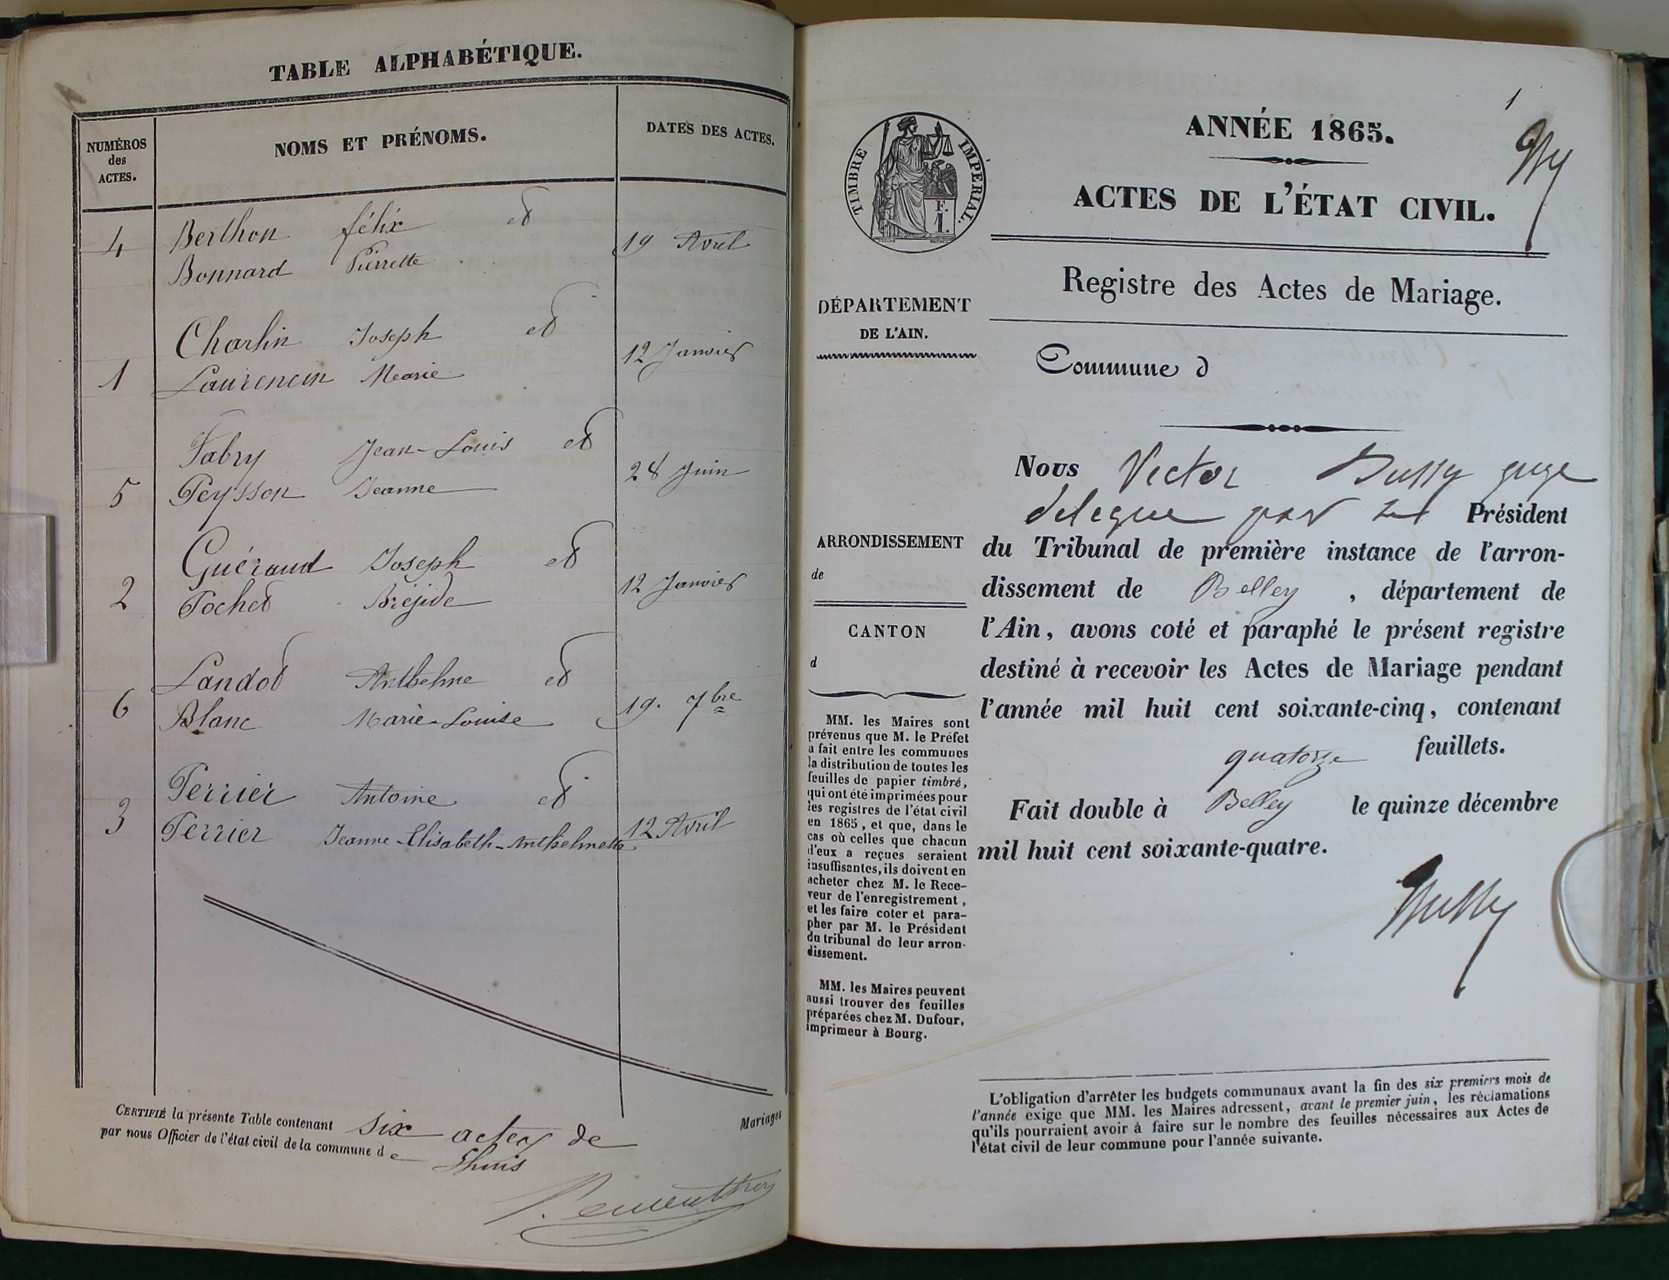 TABLE ALPHABÉTIQUE.
NUMÉROS des ACTES.
NOMS ET PRÉNOMS.
DATES DES ACTES.
Berthon félix et
4 Bonnard Pierrette 19 Avril
Charlin Joseph et
1 Laurencin Marie 12 Janvier
Fabry Jean-Louis et
5 Peysson Jeanne 28 Juin
Guéraud Joseph et
2 Pochet Bréjide 12 Janvier
Landot Anthelme et
6 Blanc Marie-Louise 19. 7bre
Perrier Antoine et
3 Perrier Jeanne-Elisabeth-Anthelmette 12 Avril
CERTIFIÉ la présente Table contenant six actes de Mariages
par nous Officier de l'état civil de la commune de Lhuis
1
TIMBRE IMPÉRIAL.
F.
1.
ANNÉE 1865.
ACTES DE L'ÉTAT CIVIL.
Registre des Actes de Mariage.
DÉPARTEMENT
DE L'AIN.
Commune d
Nous Victor Bussy juge
delegue par le Président
du Tribunal de première instance de l'arron-
dissement de Belley, département de
l'Ain, avons coté et paraphé le présent registre
destiné à recevoir les Actes de Mariage pendant
l'année mil huit cent soixante-cinq, contenant
quatorze feuillets.
Fait double à Belley le quinze décembre
mil huit cent soixante-quatre.
Bussy
ARRONDISSEMENT
de
CANTON
d
MM. les Maires sont
prévenus que M. le Préfet
a fait entre les communes
la distribution de toutes les
feuilles de papier timbré,
qui ont été imprimées pour
les registres de l'état civil
en 1865, et que, dans le
cas où celles que chacun
d'eux a reçues seraient
insuffisantes, ils doivent en
acheter chez M. le Rece-
veur de l'enregistrement,
et les faire coter et para-
pher par M. le Président
du tribunal de leur arron-
dissement.
MM. les Maires peuvent
aussi trouver des feuilles
préparées chez M. Dufour,
imprimeur à Bourg.
L'obligation d'arrêter les budgets communaux avant la fin des six premiers mois de
l'année exige que MM. les Maires adressent, avant le premier juin, les réclamations
qu'ils pourraient avoir à faire sur le nombre des feuilles nécessaires aux Actes de
l'état civil de leur commune pour l'année suivante.